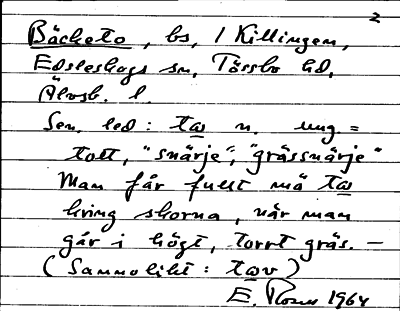 2
Bäcketo, bs, / Killingen,
Edsleskogs sn, Tössbo hd,
Älvsb. l.
Sen. led: taw n. ung. =
tott, "snärje", "grässnärje"
Man får fullt mä taw
kring skorna, när man
går i högt, torrt gräs. —
(Sannolikt: tæv)
E. 1964